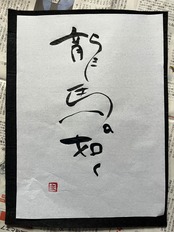 龍馬の如く